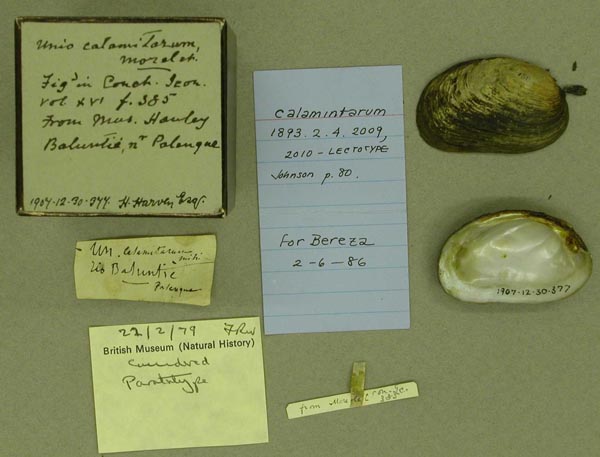 Unio calamitarum,
Morelet.
Fig^d in Conch. Icon.
vol XVI f. 385
From Mus. Hanley
Baluntiè, n^r Palenque
1907·12·30·377. H. Harvey Esq^r.
Un. calamitarum
Baluntiè
Palenque
22/2/79
British Museum (Natural History)
Considered
Paratype
calamintarum
1893.2.4.2009,
2010 - LECTOTYPE
Johnson p.80.
For Bereza
2-6-86
from Morelet
385
1907·12·30·377